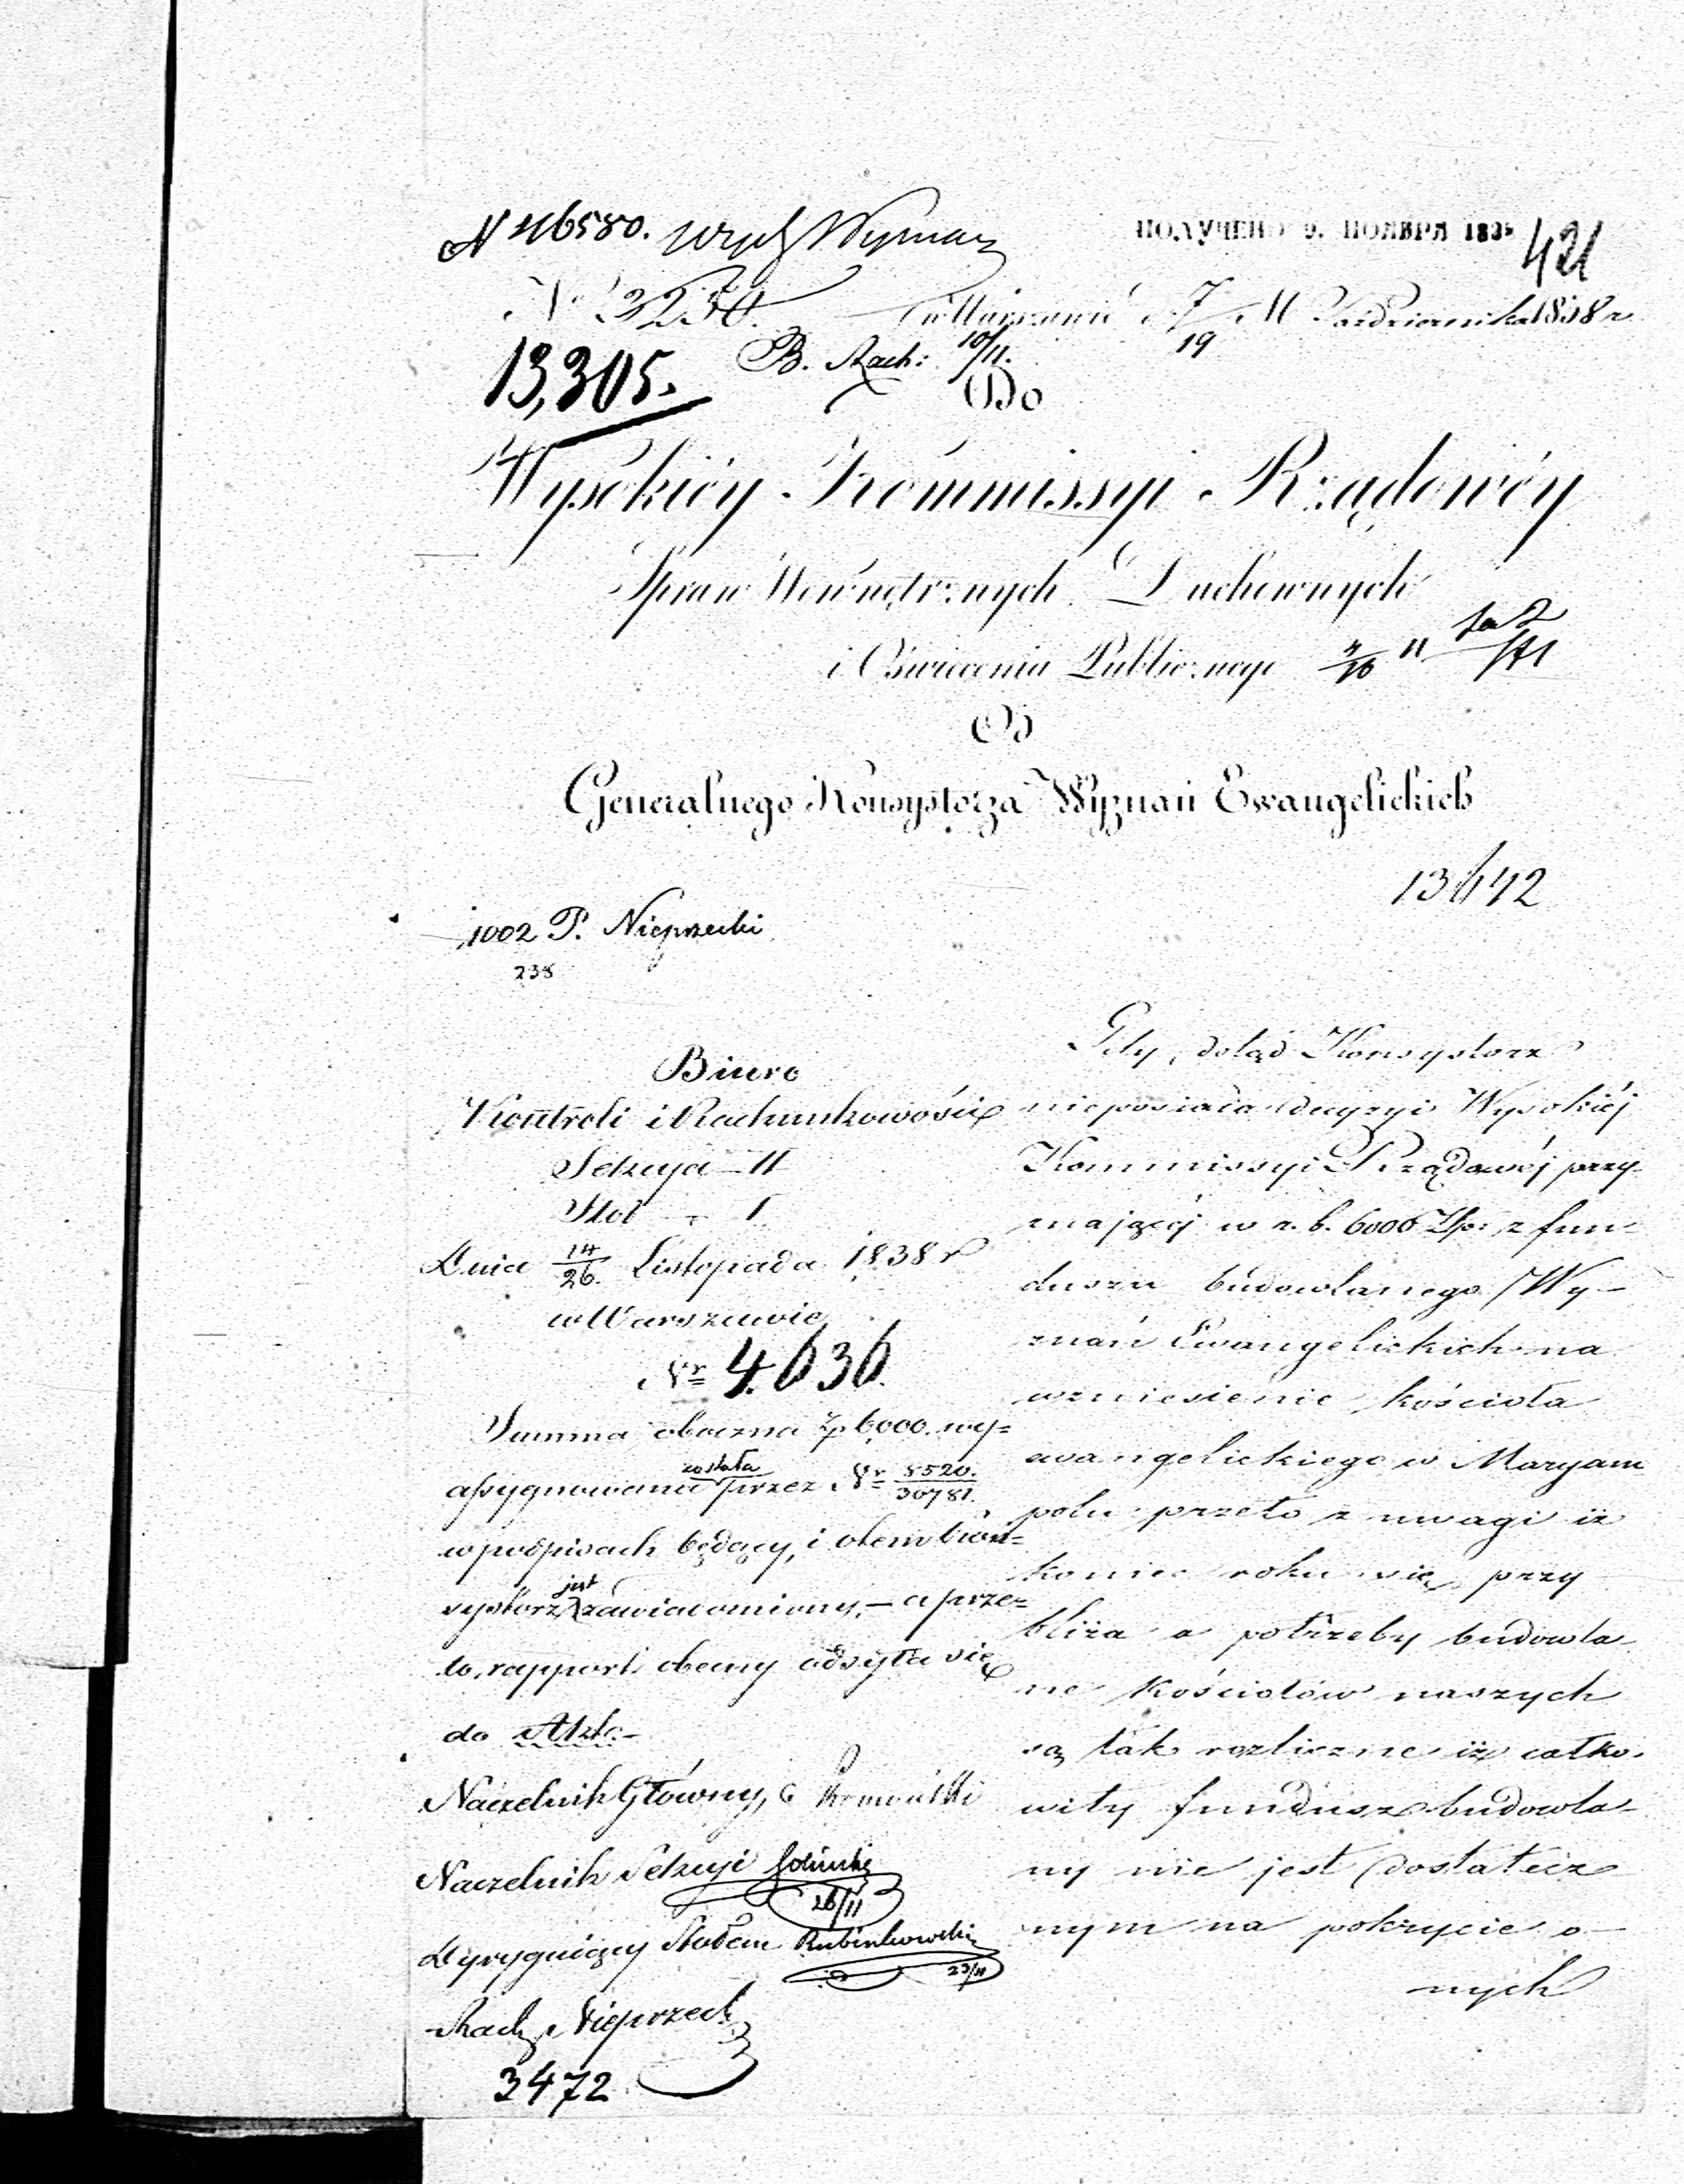 N 46580. Wyzn
ПОЛУЧЕНО 9. НОЯБРЯ 183
421
N 3250. w Warszawie d. 7/19 M Października 1838 r
13,305. B. Rach: 10/11.
Do
Wysokiéy Kommissyi Rządowéy
Spraw Wewnętrznych Duchownych
i Oświecenia Publicznego
Od
Generalnego Konsystorza Wyznań Ewangelickich
13642
1002 P. Nieprzecki
238
Biuro
Kontroli i Rachunkowości
Sekcya II
Stół I
Dnia 14/26. Listopada 1838 r
w Warszawie
Nr 4.636.
Summa obaczna Zp 6000. wy=
assygnowana została przez Nr 8520./30781.
w podpisach będący, i otem Kon=
systorz jest zawiadomiony, — a prze=
to, rapport obecny odsyła się
do Akt.—
Naczelnik Główny,
Naczelnik Sekcyi
26/11
Dyrygujący Stołem Rubinkowski
23/11
Rach. Nieprzecki
3472
Gdy dotąd Konsystorz
nieposiada decyzyi Wysokiéj
Kommissyi Rządowéj przy
znającéj w r. b. 6000 Złp: z fun
duszu budowlanego Wy-
znań Ewangelickich na
wzniesienie kościoła
ewangelickiego w Maryam
polu przeto z uwagi iż
koniec roku się przy
bliża a potrzeby budowla
ne Kościołów naszych
są tak rozliczne iż całko.
wity fundusz budowla
ny nie jest dostatecz
nym na pokrycie o-
nych